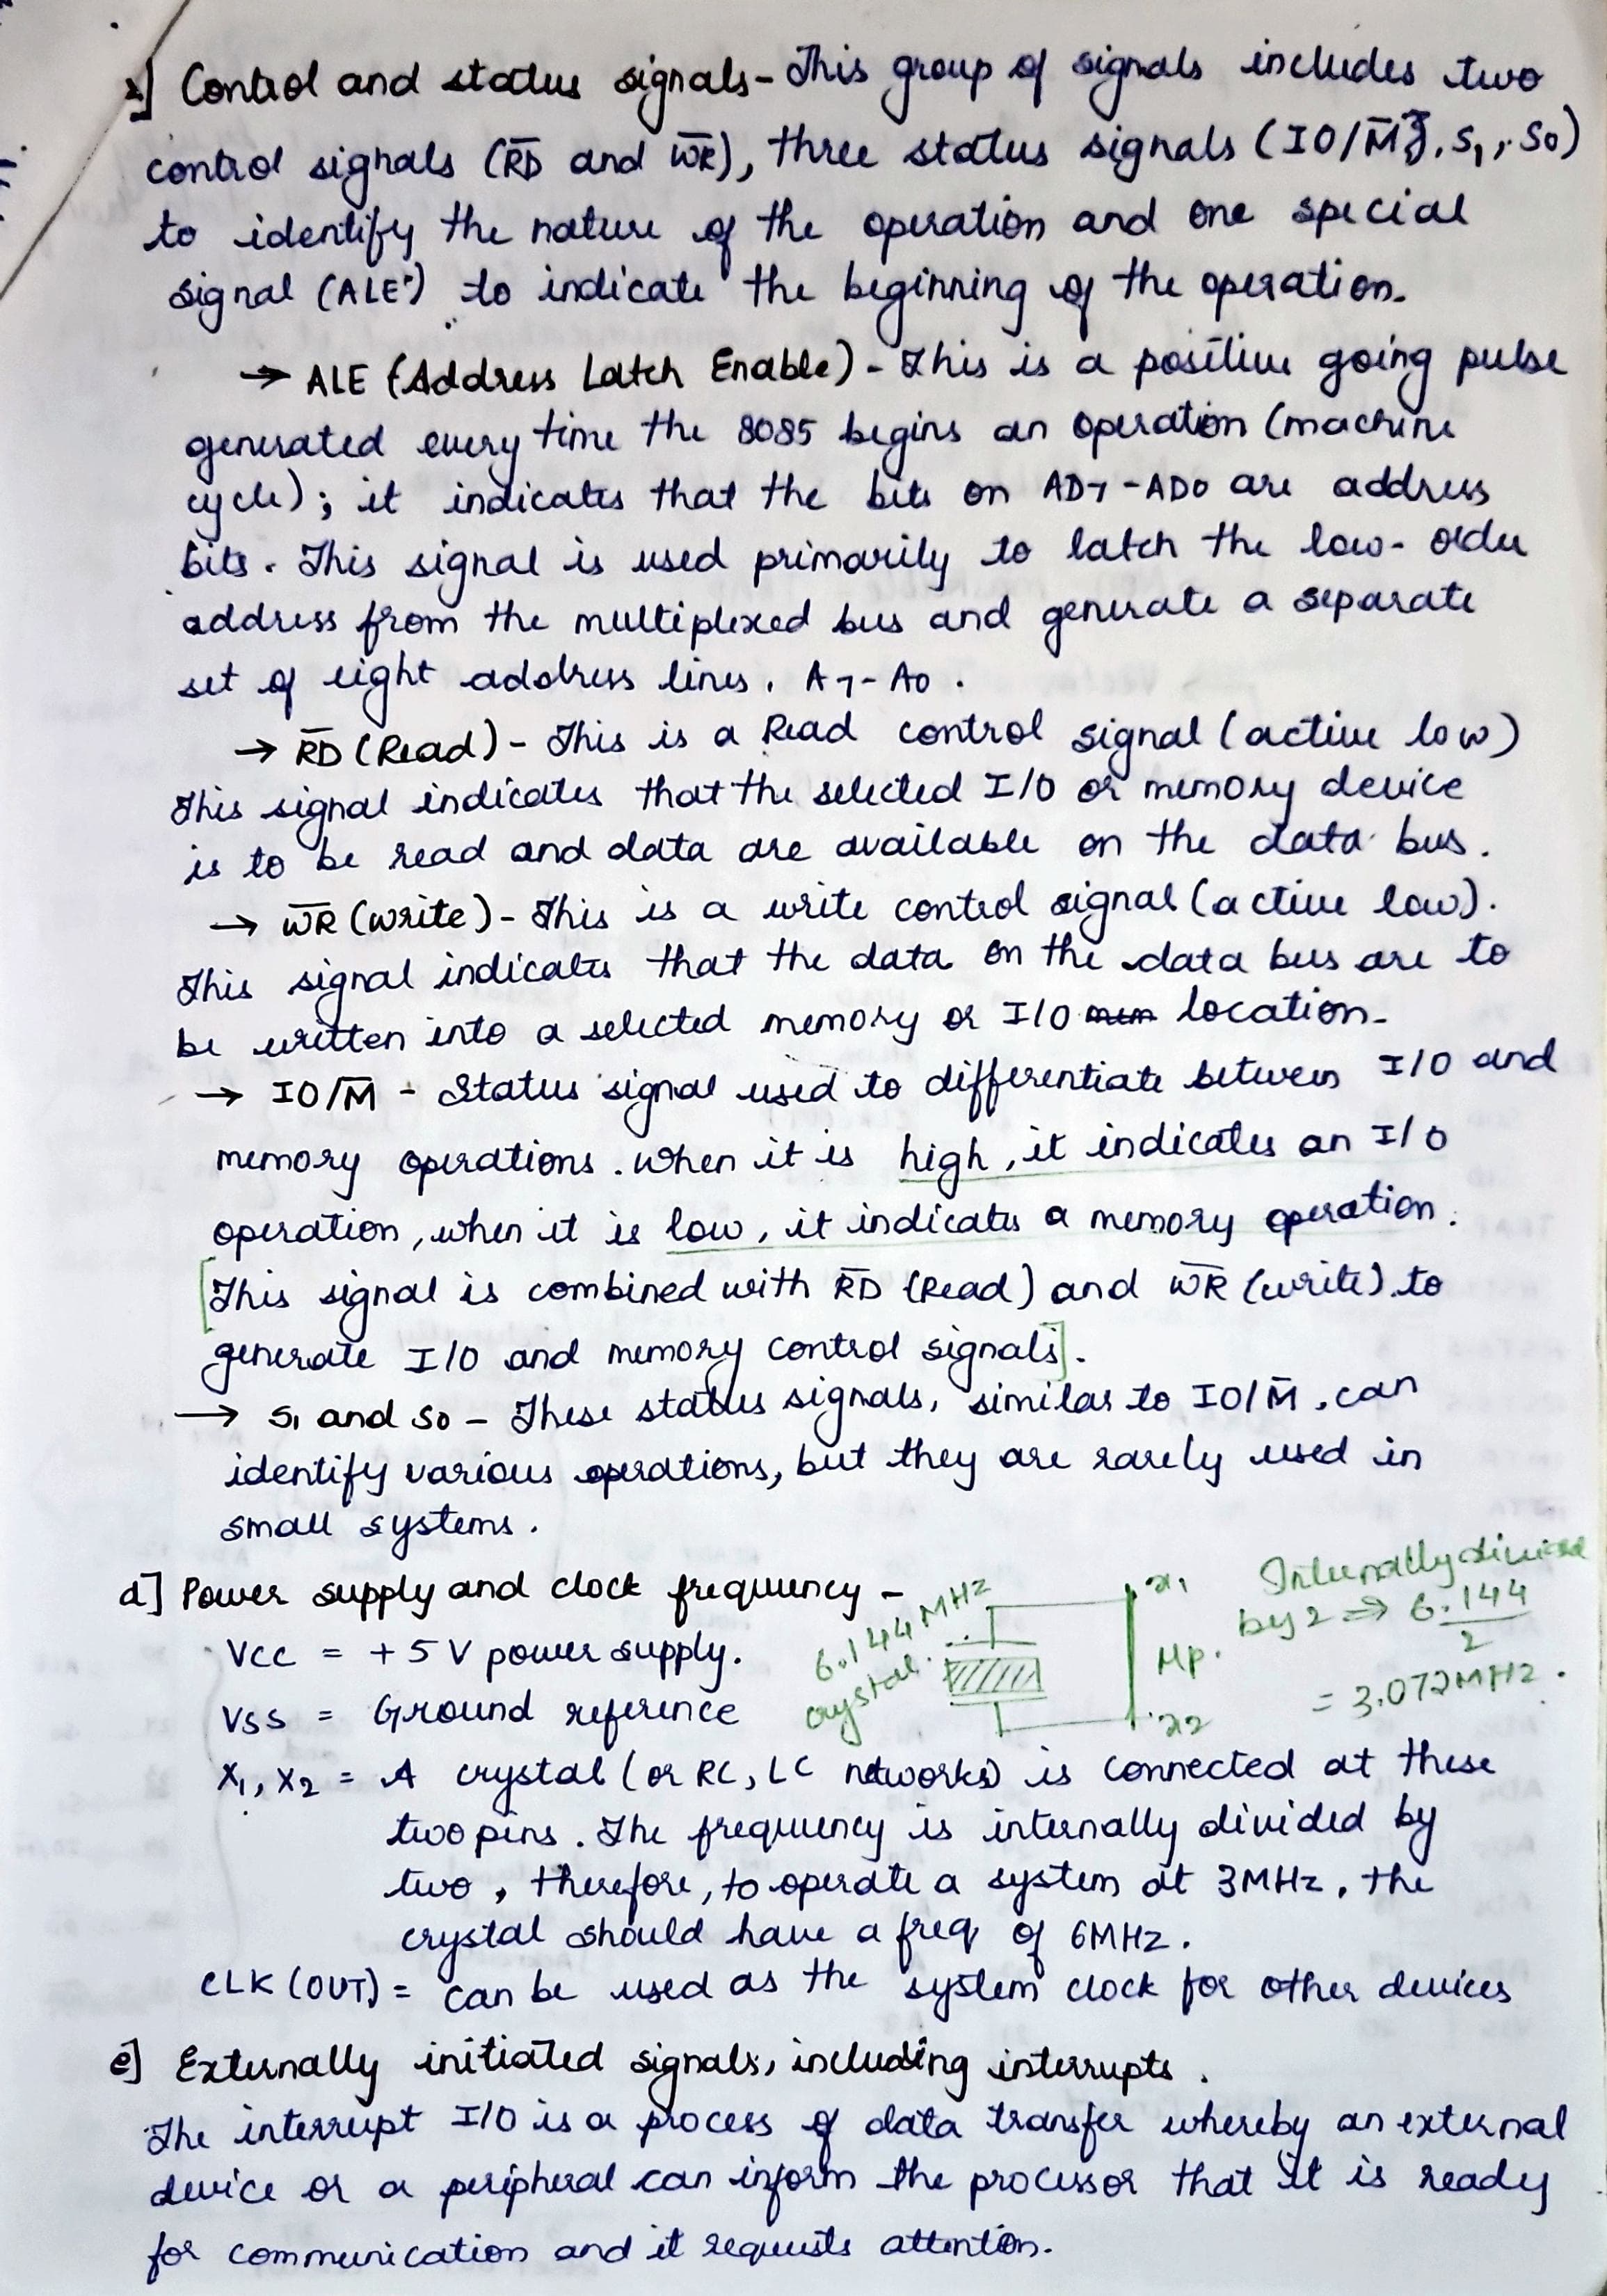 ] Control and status signals - This group of signals includes two
control signals (R̅D̅ and W̅R̅), three status signals (IO/M̅, S1, S0)
to identify the nature of the operation and one special
signal (ALE) to indicate the beginning of the operation.
→ ALE (Address Latch Enable) - This is a positive going pulse
generated every time the 8085 begins an operation (machine
cycle); it indicates that the bits on AD7-AD0 are address
bits. This signal is used primarily to latch the low-order
address from the multiplexed bus and generate a separate
set of eight address lines, A7-A0.
→ R̅D̅ (Read) - This is a Read control signal (active low)
This signal indicates that the selected I/O or memory device
is to be read and data are available on the data bus.
→ W̅R̅ (write) - This is a write control signal (active low).
This signal indicates that the data on the data bus are to
be written into a selected memory or I/O location.
→ IO/M̅ - Status signal used to differentiate between I/O and
memory operations. when it is high, it indicates an I/O
operation, when it is low, it indicates a memory operation.
[This signal is combined with R̅D̅ (Read) and W̅R̅ (write) to
generate I/O and memory control signals].
→ S1 and S0 - These status signals, similar to IO/M̅, can
identify various operations, but they are rarely used in
small systems.
d] Power supply and clock frequency -
VCC = +5 V power supply.
VSS = Ground reference
6.144 MHz
crystal.
x1
Mp.
x2
Internally divided
by 2 ⇒ 6.144
2
= 3.072 MHz.
X1, X2 = A crystal (or RC, LC networks) is connected at these
two pins. The frequency is internally divided by
two, therefore, to operate a system at 3MHz, the
crystal should have a freq of 6MHz.
CLK (OUT) = can be used as the system clock for other devices
e] Externally initiated signals, including interrupts.
The interrupt I/O is a process of data transfer whereby an external
device or a peripheral can inform the processor that it is ready
for communication and it requests attention.